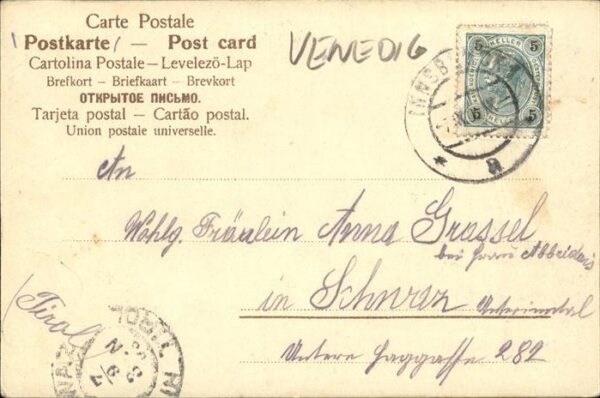 Carte Postale
Postkarte — Post card
Cartolina Postale — Levelezö-Lap
Brefkort — Briefkaart — Brevkort
ОТКРЫТОЕ ПИСЬМО.
Tarjeta postal — Cartão postal.
Union postale universelle.
VENEDIG
5 HELLER 5
5 5
INNSB
An
Wohlg. Fräulein Anna Grassel
bei Frau
in Schwaz Unterinnthal
(Tirol)
Untere 282